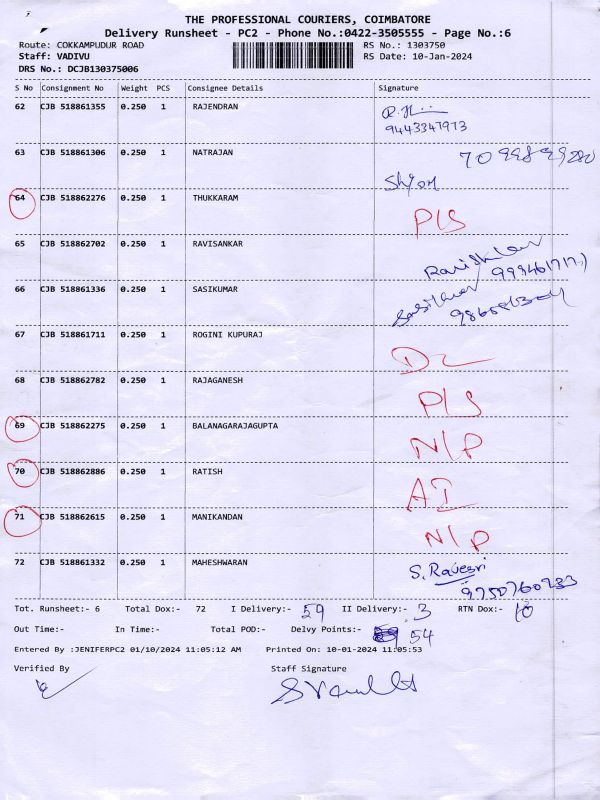 THE PROFESSIONAL COURIERS, COIMBATORE
Delivery Runsheet - PC2 - Phone No.:0422-3505555 - Page No.:6
Route: COKKAMPUDUR ROAD RS No.: 1303750
Staff: VADIVU RS Date: 10-Jan-2024
DRS No.: DCJB130375006
S No Consignment No Weight PCS Consignee Details Signature
62 CJB 518861355 0.250 1 RAJENDRAN
9443347973
63 CJB 518861306 0.250 1 NATRAJAN
64 CJB 518862276 0.250 1 THUKKARAM P/S
65 CJB 518862702 0.250 1 RAVISANKAR
66 CJB 518861336 0.250 1 SASIKUMAR
67 CJB 518861711 0.250 1 ROGINI KUPURAJ DL
68 CJB 518862782 0.250 1 RAJAGANESH P/S
69 CJB 518862275 0.250 1 BALANAGARAJAGUPTA N/P
70 CJB 518862886 0.250 1 RATISH AI
71 CJB 518862615 0.250 1 MANIKANDAN N/P
72 CJB 518861332 0.250 1 MAHESHWARAN S.
9750760233
Tot. Runsheet:- 6 Total Dox:- 72 I Delivery:- 59 II Delivery:- 3 RTN Dox:- 10
Out Time:- In Time:- Total POD:- Delvy Points:- 54
Entered By :JENIFERPC2 01/10/2024 11:05:12 AM Printed On: 10-01-2024 11:05:53
Verified By Staff Signature